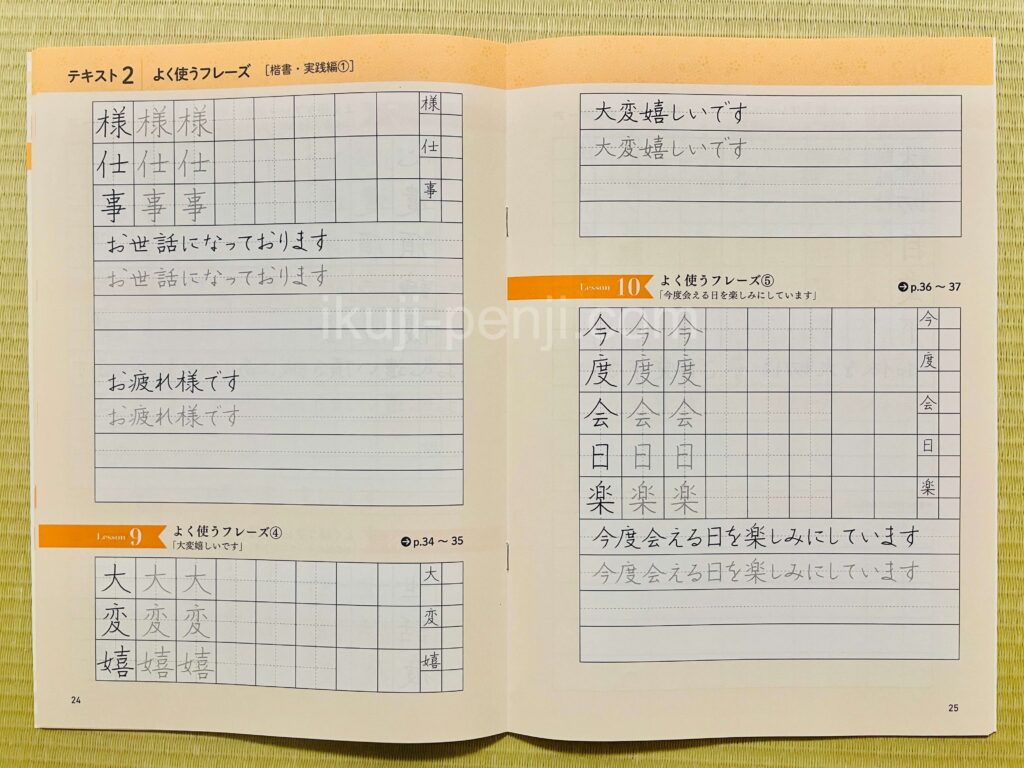 テキスト2 よく使うフレーズ [楷書・実践編①]
様 様 様 様
仕 仕 仕 仕
事 事 事 事
お世話になっております
お世話になっております
お疲れ様です
お疲れ様です
Lesson 9 よく使うフレーズ④ ➔p.34～35
「大変嬉しいです」
大 大 大 大
変 変 変 変
嬉 嬉 嬉 嬉
24
大変嬉しいです
大変嬉しいです
Lesson 10 よく使うフレーズ⑤ ➔p.36～37
「今度会える日を楽しみにしています」
今 今 今 今
度 度 度 度
会 会 会 会
日 日 日 日
楽 楽 楽 楽
今度会える日を楽しみにしています
今度会える日を楽しみにしています
25
ikuji-penji.com